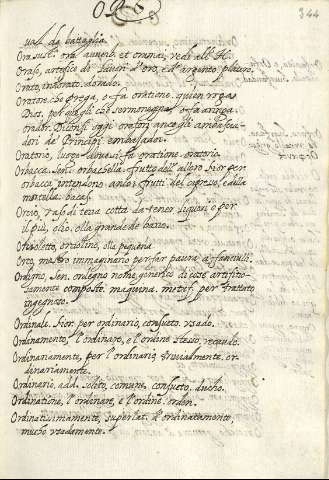 O R
344
da battaglia.
Orasusi. ora auuerb. et oramai, uedi all' H.
Orafo, artefice di lauori d'oro, e d'argento. platero.
Orato, indorato. dorado.
Oratore. che prega, o fa oratione. quien ruega
Dios. per quegli che sermoneggia o fa aringa.
orador. Diconsi oggi oratori anco gli ambascia-
dori de' Principi. embaxador.
Oratorio, luogo doue si fa oratione. oratorio.
Orbacca. Sen. orbachella. frutto dell' alloro. Fior. per
orbacca intendono ancor i frutti del cipresso, e della
mortella. bacas.
Orcio, uaso di terra cotta da tener liquori e per
il più, olio. olla grande de barro.
Orcioletto, orciolino, olla pequeña.
Orco, mostro immaginario per far paura a' fanciulli.
Ordigno, Sen. ordegno nome generico di cose artifitio-
samente composte. maquina. metaf. per trattato
ingegnoso.
Ordinale. Fior. per ordinario, consueto. usado.
Ordinamento, l'ordinare, e l'ordine stesso, recaudo.
Ordinariamente, per l'ordinario. triuialmente. or-
dinariamente.
Ordinario. add. solito, comune, consueto. dicho.
Ordinatione, l'ordinare, e l'ordine. orden.
Ordinatissimamente, superlat. d'ordinatamente,
mucho usadamente.